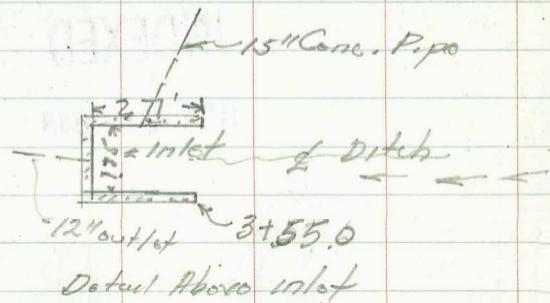 INDEXED
15" Conc. Pipe
2.71'
1.76'
Inlet
℄ Ditch
12" outlet
3+55.0
Detail Above inlet